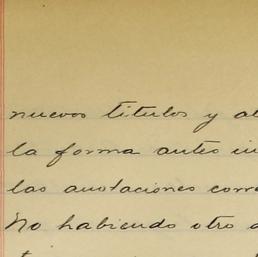 nuevos titulos y
la forma antes
las anotaciones
No habiendo otro